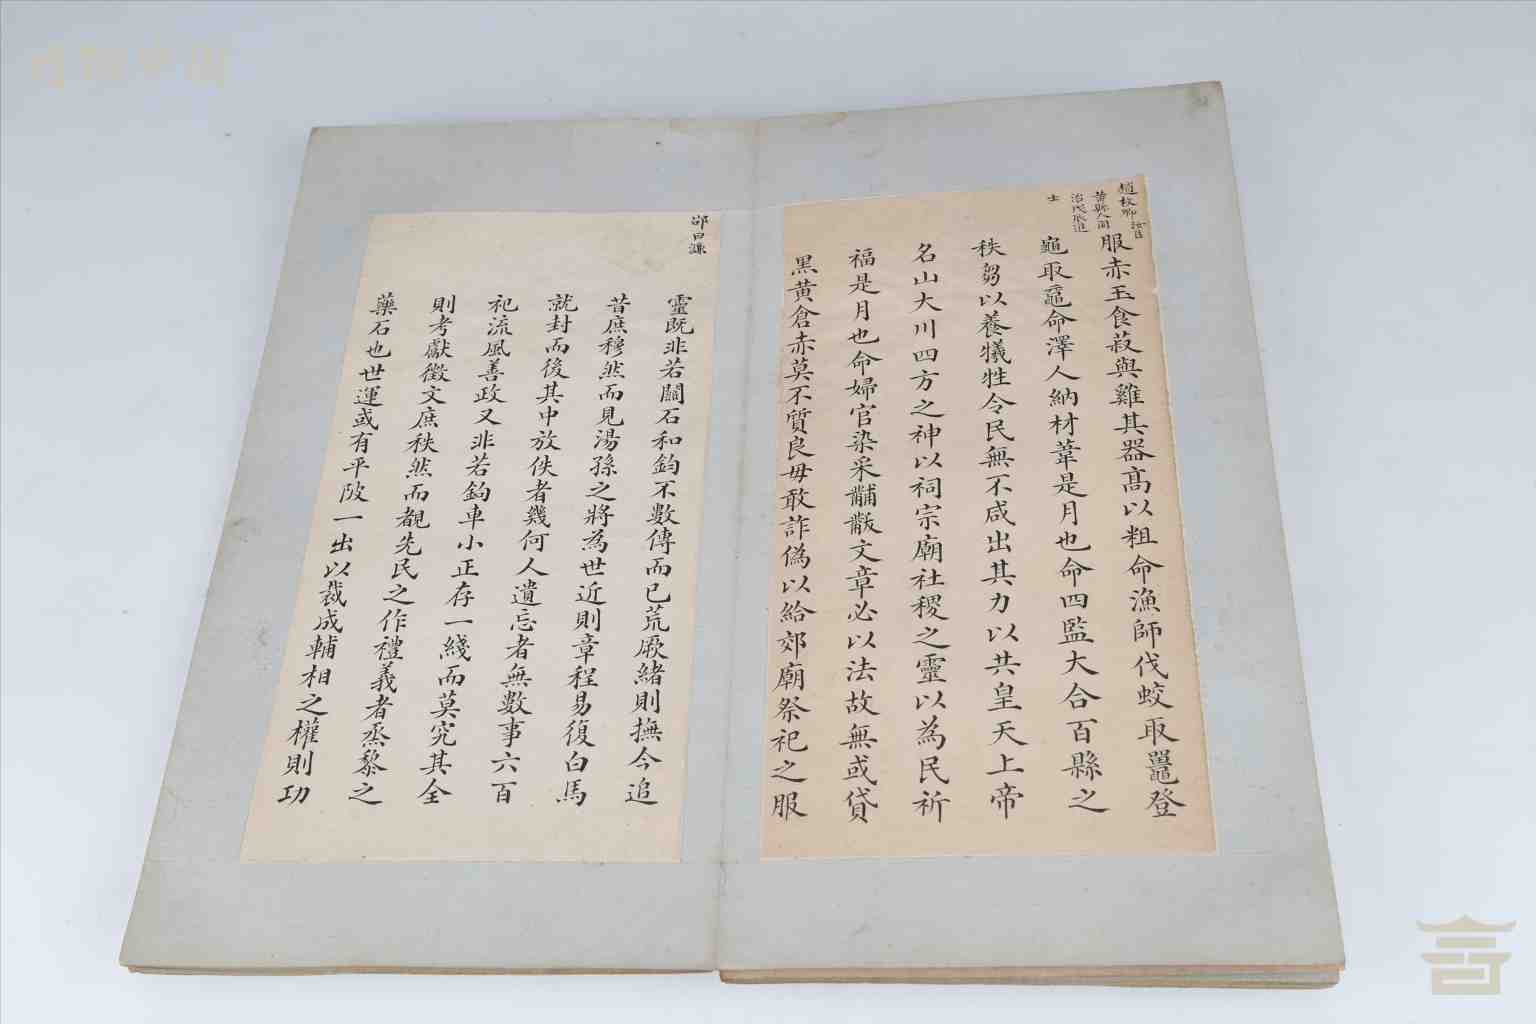 趙枚聊
治民能進
士
服赤玉食菽與雞其器高以粗命漁師伐蛟取鼉登
龜取黿命澤人納材葦是月也命四監大合百縣之
秩芻以養犧牲令民無不咸出其力以共皇天上帝
名山大川四方之神以祠宗廟社稷之靈以為民祈
福是月也命婦官染采黼黻文章必以法故無或貸
黑黃倉赤莫不質良毋敢詐偽以給郊廟祭祀之服
邵曰濂
靈旣非若關石和鈞不數傳而已荒厥緒則撫今追
昔庶穆然而見湯孫之將為世近則章程易復白馬
就封而後其中放佚者幾何人遺忘者無數事六百
祀流風善政又非若鈞車小正存一綫而莫究其全
則考獻徵文庶秩然而覩先民之作禮義者烝黎之
藥石也世運或有平陂一出以裁成輔相之權則功